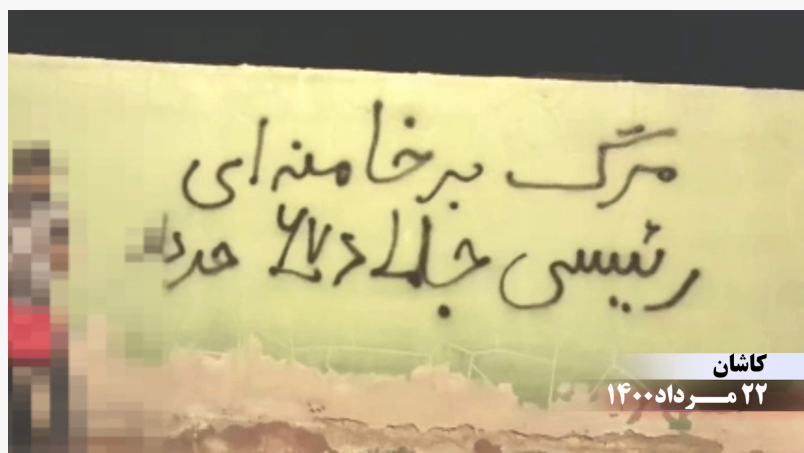 مرگ بر خامنه‌ای
رئیسی جلاد ۶۷
کاشان
۲۲ مـــرداد۱۴۰۰